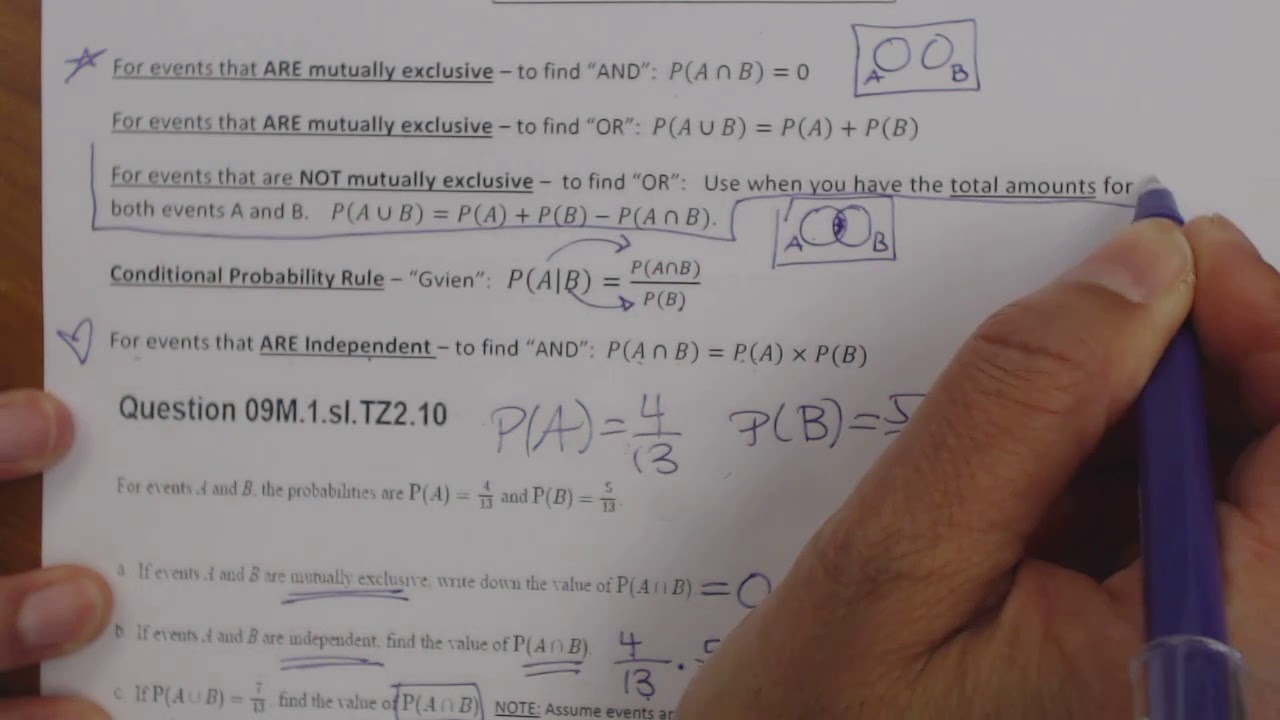 For events that ARE mutually exclusive – to find “AND”: P(A ∩ B) = 0
A B
For events that ARE mutually exclusive – to find “OR”: P(A ∪ B) = P(A) + P(B)
For events that are NOT mutually exclusive – to find “OR”: Use when you have the total amounts for
both events A and B. P(A ∪ B) = P(A) + P(B) − P(A ∩ B).
A B
Conditional Probability Rule – “Gvien”: P(A|B) = P(A∩B)/P(B)
For events that ARE Independent – to find “AND”: P(A ∩ B) = P(A) × P(B)
Question 09M.1.sl.TZ2.10 P(A) = 4/13 P(B) = 5
For events A and B, the probabilities are P(A) = 4/13 and P(B) = 5/13.
a If events A and B are mutually exclusive, write down the value of P(A ∩ B) = 0
b. If events A and B are independent, find the value of P(A ∩ B). 4/13 ·
c. If P(A ∪ B) = 7/13, find the value of P(A ∩ B) NOTE: Assume events